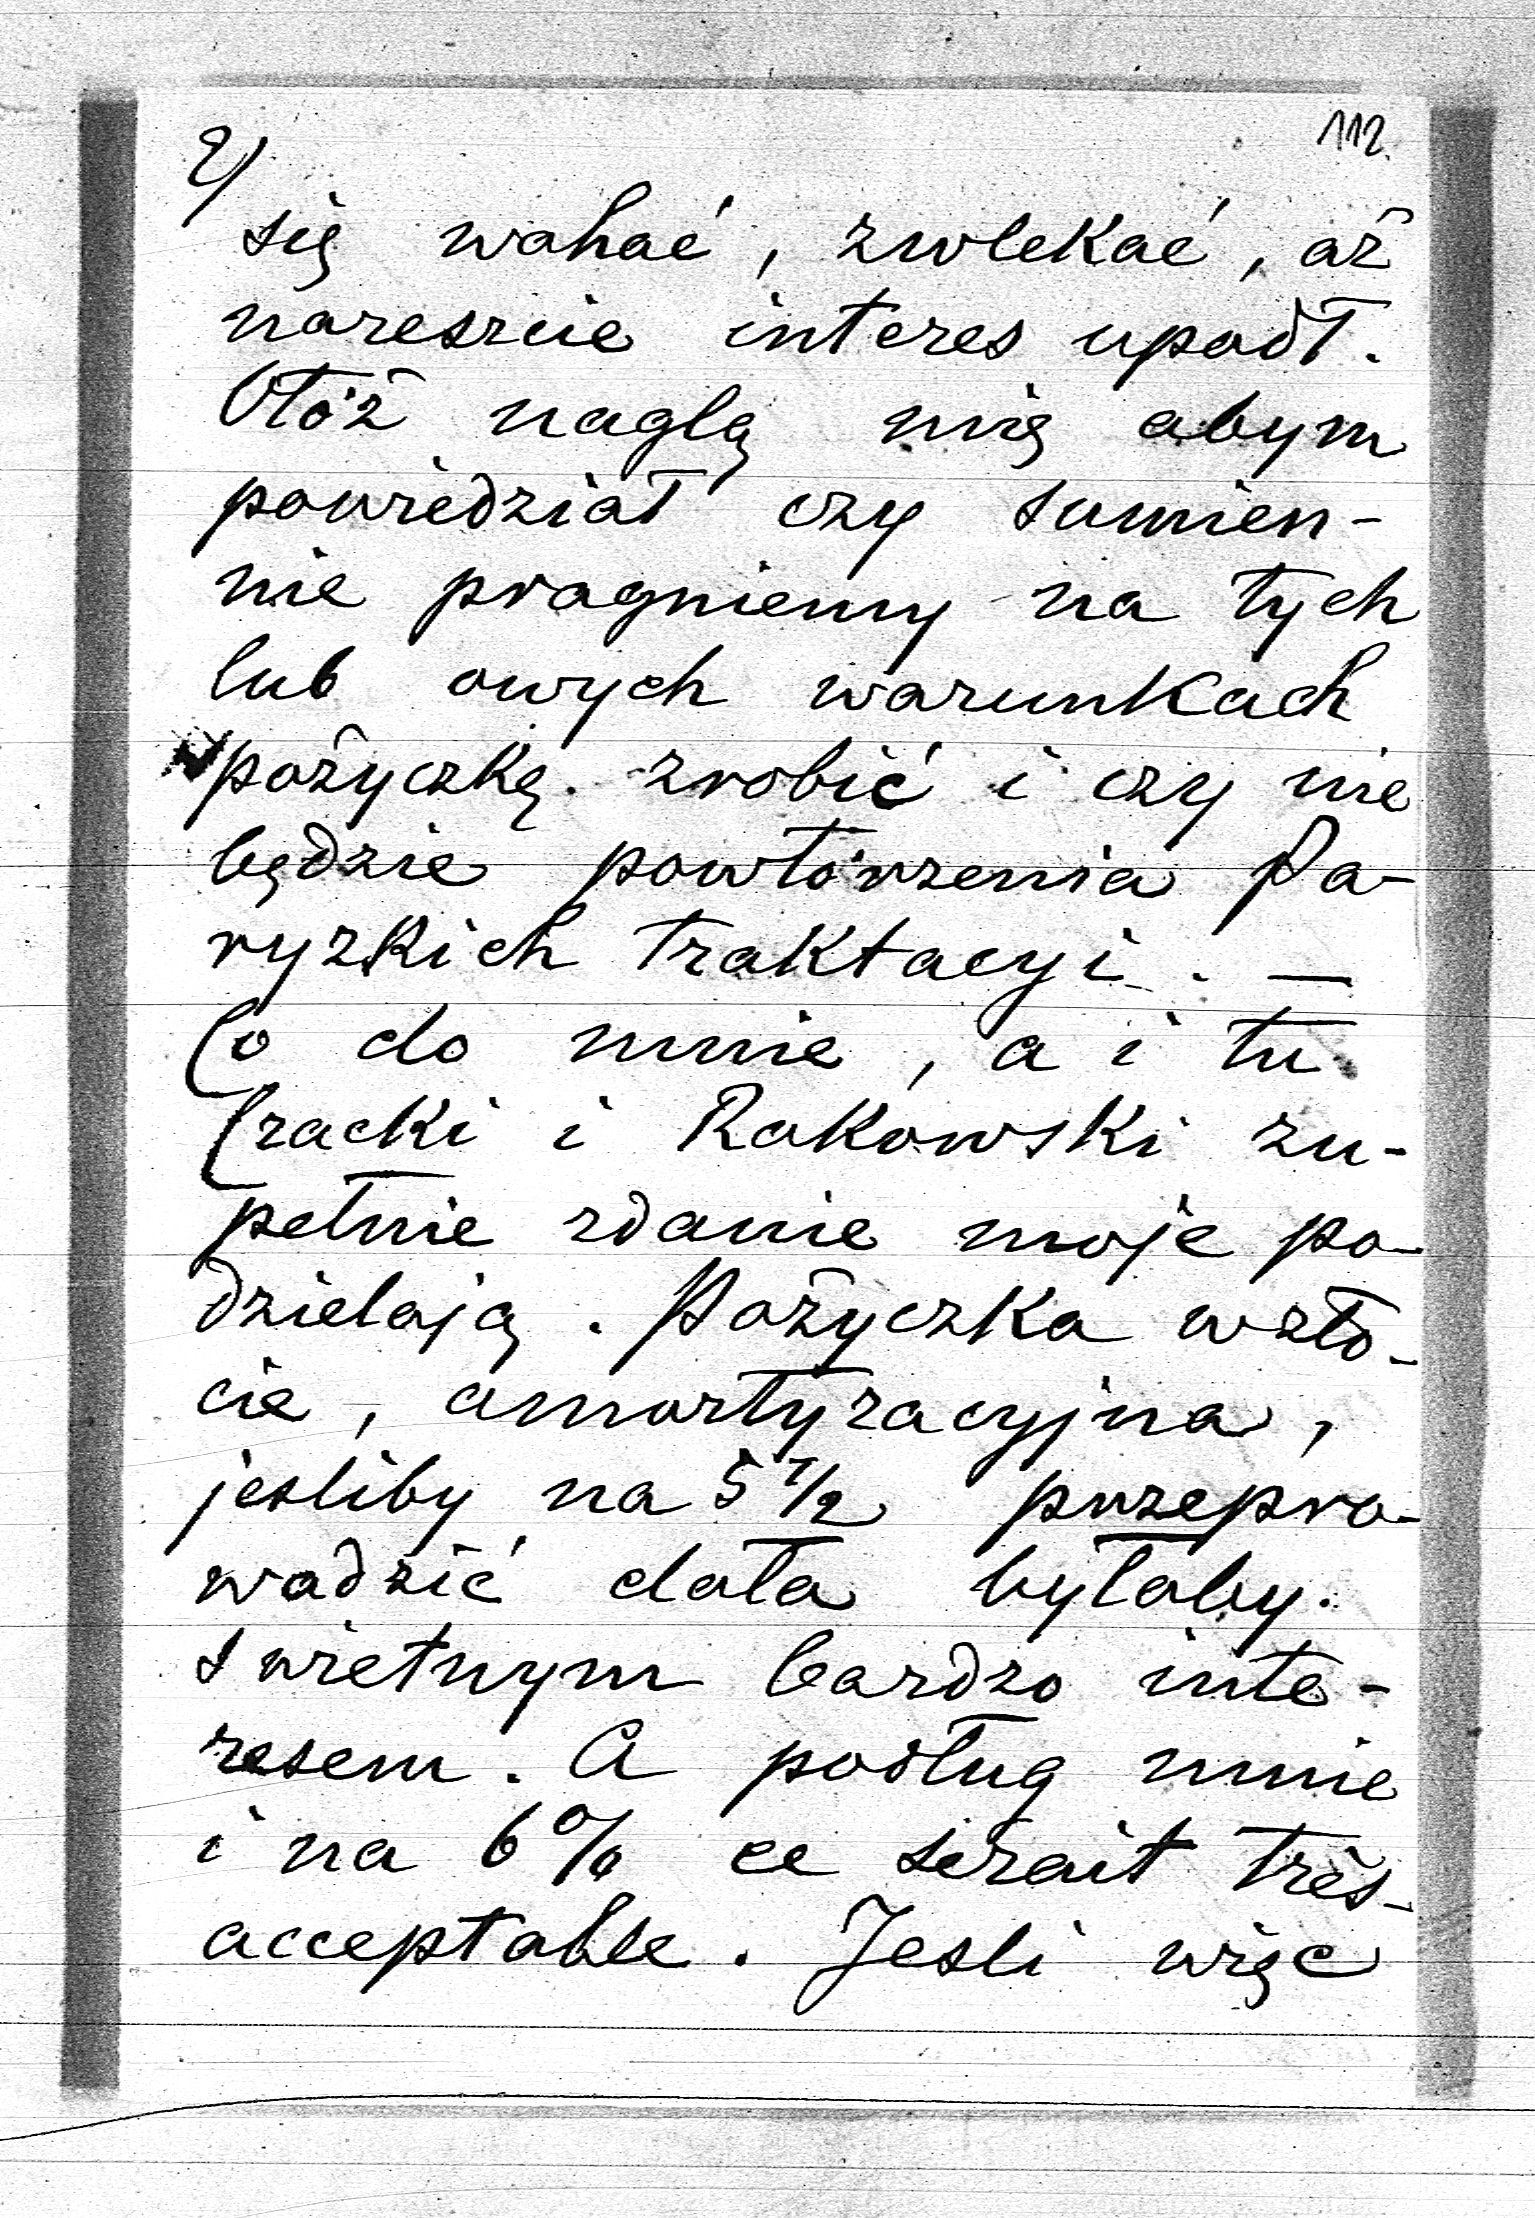 2)
112.
się wahać, zwlekać, aż
nareszcie interes upadł.
Otóż naglą mię abym
powiedział czy sumien-
nie pragniemy na tych
lub owych warunkach
pożyczkę zrobić i czy nie
będzie powtórzenia Pa-
ryzkich traktacyi. —
Co do mnie, a i tu
Czacki i Rakowski zu-
pełnie zdanie moje po-
dzielają. Pożyczka w zło-
cie, amortyzacyjna,
jesliby na 5 1/2 przepro-
wadzić dała byłaby
swietnym bardzo inte-
resem. A podług mnie
i na 6% ce serait très-
acceptable. Jesli więc